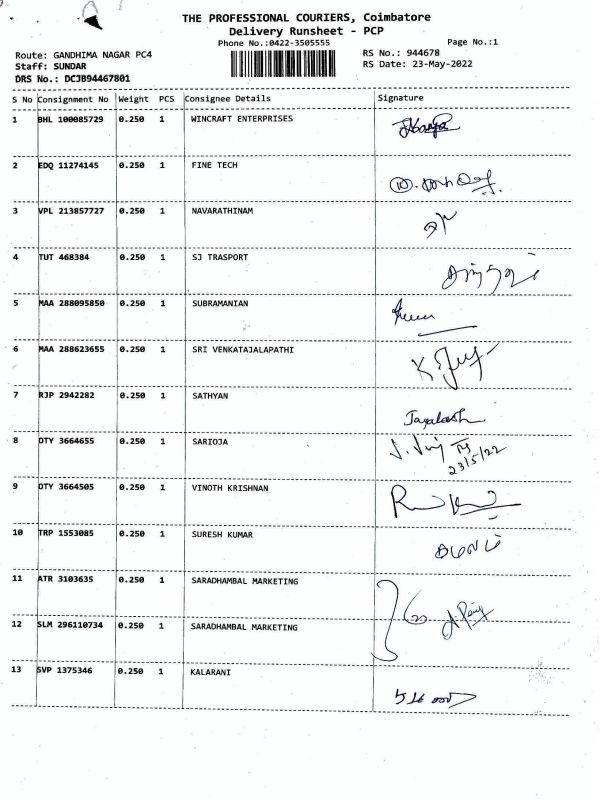 THE PROFESSIONAL COURIERS, Coimbatore
Delivery Runsheet - PCP
Phone No.:0422-3505555 Page No.:1
Route: GANDHIMA NAGAR PC4 RS No.: 944678
Staff: SUNDAR RS Date: 23-May-2022
DRS No.: DCJB94467801
S No Consignment No Weight PCS Consignee Details Signature
1 BHL 100085729 0.250 1 WINCRAFT ENTERPRISES
2 EDQ 11274145 0.250 1 FINE TECH
3 VPL 213857727 0.250 1 NAVARATHINAM
4 TUT 468384 0.250 1 SJ TRASPORT
5 MAA 288095850 0.250 1 SUBRAMANIAN
6 MAA 288623655 0.250 1 SRI VENKATAJALAPATHI
7 RJP 2942282 0.250 1 SATHYAN
8 OTY 3664655 0.250 1 SARIOJA
23/5/22
9 OTY 3664505 0.250 1 VINOTH KRISHNAN
10 TRP 1553085 0.250 1 SURESH KUMAR
11 ATR 3103635 0.250 1 SARADHAMBAL MARKETING
12 SLM 296110734 0.250 1 SARADHAMBAL MARKETING
13 SVP 1375346 0.250 1 KALARANI